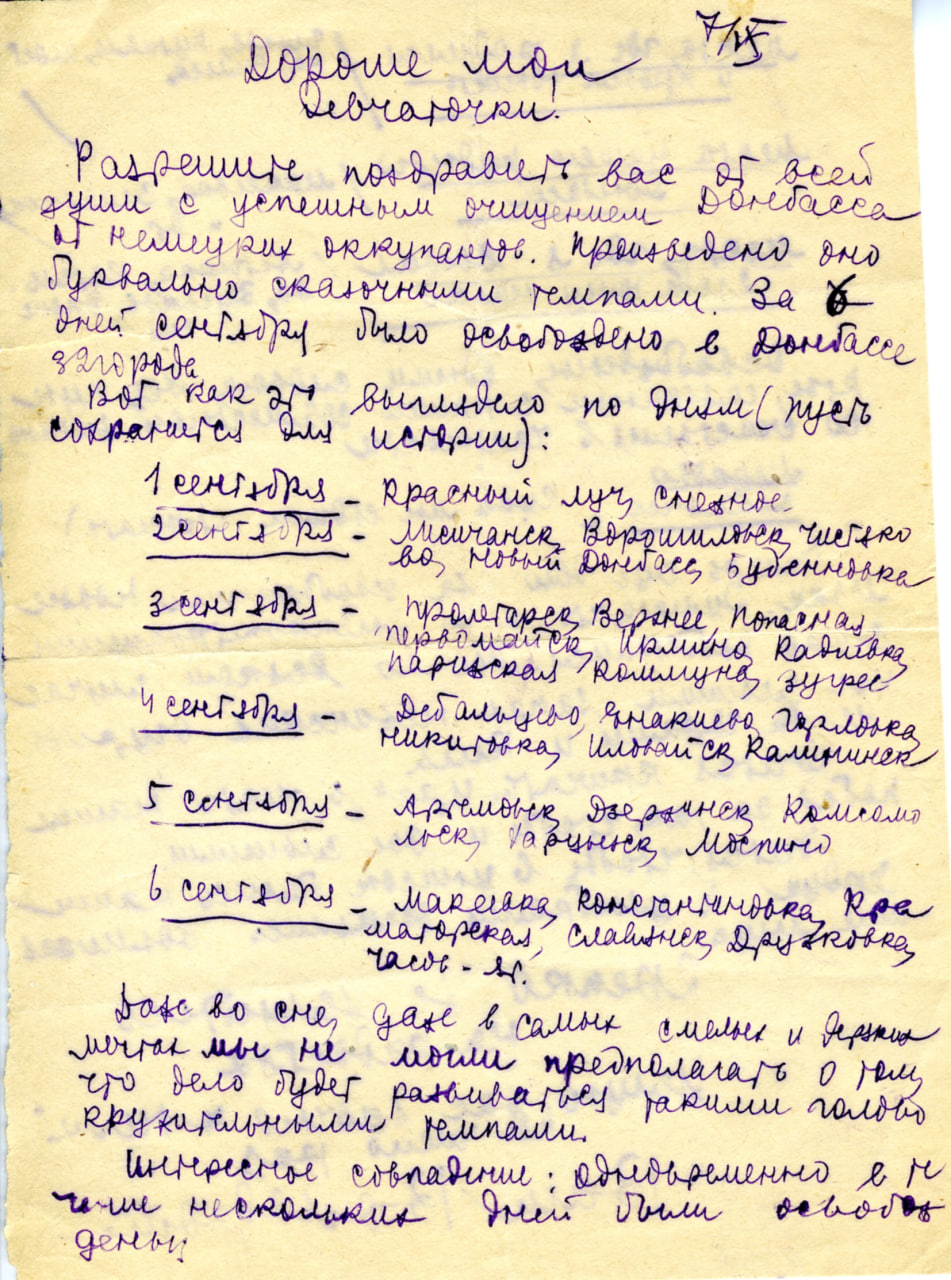 7/IX
Дороше мои
Девчаточки!
Разрешите поздравить вас от всей
души с успешным очищением Донбасса
от немецких оккупантов. Произведено оно
буквально сказочными темпами. За 6
дней сентября было освобождено в Донбассе
32 города
Вот как это выглядело по дням (пусть
сохранится для истории):
1 сентября - Красный луч, Снежное
2 сентября - Лисичанск, Ворошиловск, Чистяко
во, Новый Донбасс, Буденновка
3 сентября - Пролетарск, Верхнее, Попасная,
Первомайск, Ирмино, Кадиевка,
Парижская Коммуна, Зугрес
4 сентября - Дебальцево, Енакиево, Горловка,
Никитовка, Иловайск, Калининск
5 сентября - Артемовск, Дзержинск, Комсомо
льск, Харцызск, Моспино
6 сентября - Макеевка, Константиновка, Кра
маторская, Славянск, Дружковка,
Часов-яр.
Даже во сне, даже в самых смелых и дерзких
мечтах мы не могли предполагать о том,
что дело будет развиваться такими голово
кружительными темпами.
Интересное совпадение: одновременно в те
чение нескольких дней были освобож
дены